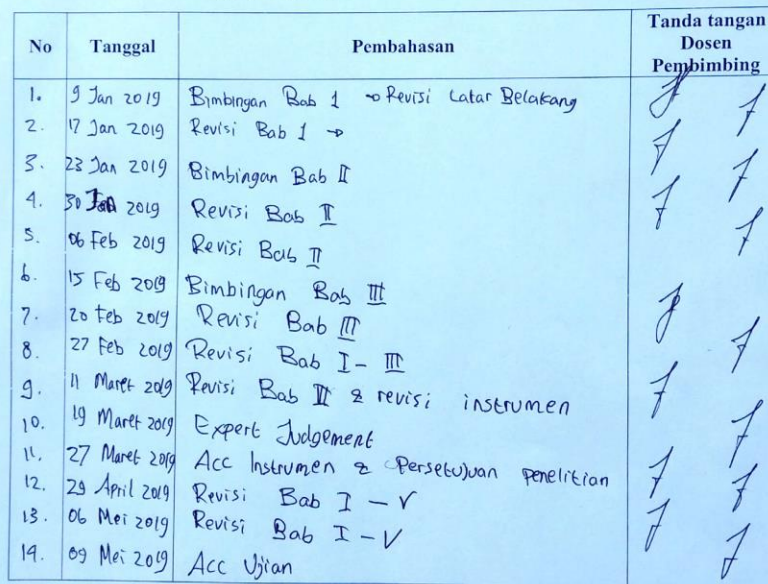 No Tanggal Pembahasan Tanda tangan Dosen Pembimbing
1. 9 Jan 2019 Bimbingan Bab 1 → Revisi Latar Belakang
2. 17 Jan 2019 Revisi Bab 1 →
3. 23 Jan 2019 Bimbingan Bab II
4. 30 Jan 2019 Revisi Bab II
5. 06 Feb 2019 Revisi Bab II
6. 15 Feb 2019 Bimbingan Bab III
7. 20 Feb 2019 Revisi Bab III
8. 27 Feb 2019 Revisi Bab I - III
9. 11 Maret 2019 Revisi Bab III & revisi instrumen
10. 19 Maret 2019 Expert Judgement
11. 27 Maret 2019 Acc Instrumen & Persetujuan penelitian
12. 29 April 2019 Revisi Bab I - V
13. 06 Mei 2019 Revisi Bab I - V
14. 09 Mei 2019 Acc Ujian